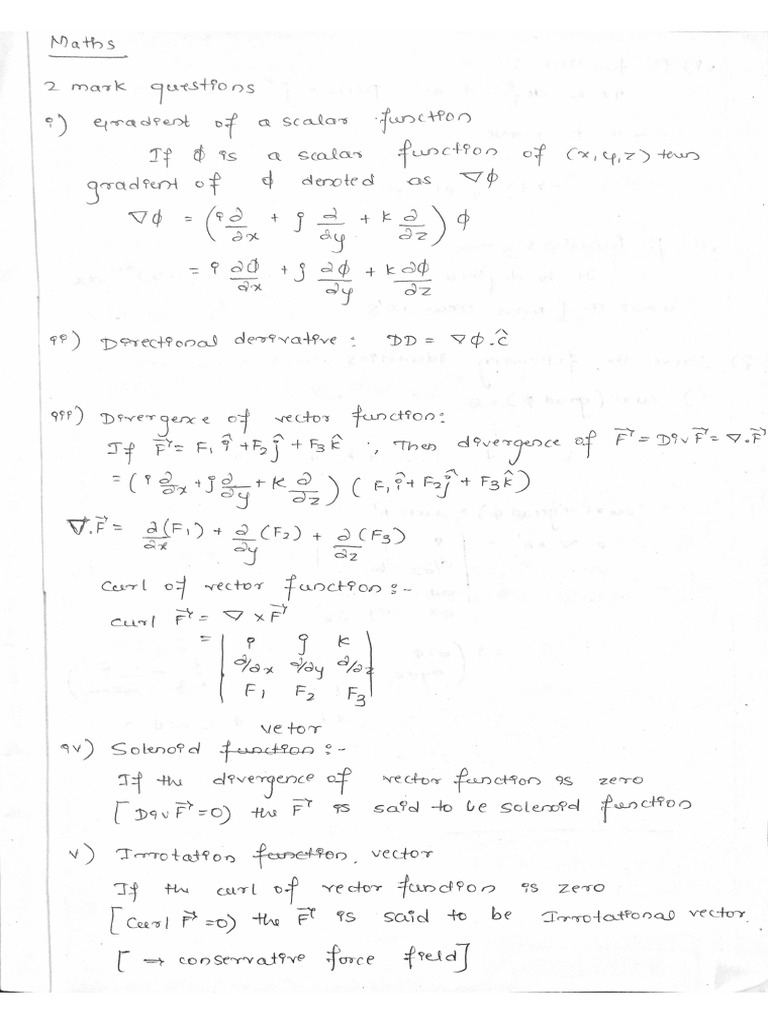 Maths
2 mark questions
i) Gradient of a scalar function
If ϕ is a scalar function of (x, y, z) then
gradient of ϕ denoted as ∇ϕ
∇ϕ = (i ∂/∂x + j ∂/∂y + k ∂/∂z) ϕ
= i ∂ϕ/∂x + j ∂ϕ/∂y + k ∂ϕ/∂z
ii) Directional derivative : DD = ∇ϕ.ĉ
iii) Divergence of vector function:
If F⃗ = F₁ î + F₂ ĵ + F₃ k̂ , Then divergence of F⃗ = Div F⃗ = ∇.F⃗
= (i ∂/∂x + j ∂/∂y + k ∂/∂z) (F₁ î + F₂ ĵ + F₃ k̂)
∇.F⃗ = ∂/∂x (F₁) + ∂/∂y (F₂) + ∂/∂z (F₃)
Curl of vector function :-
curl F⃗ = ∇ × F⃗
= | i j k |
| ∂/∂x ∂/∂y ∂/∂z |
| F₁ F₂ F₃ |
vetor
iv) Solenoid function :-
If the divergence of vector function is zero
[Div F⃗ = 0) the F⃗ is said to be solenoid function
v) Irrotation function, vector
If the curl of vector function is zero
[Curl F⃗ = 0) the F⃗ is said to be Irrotational vector.
[→ conservative force field]